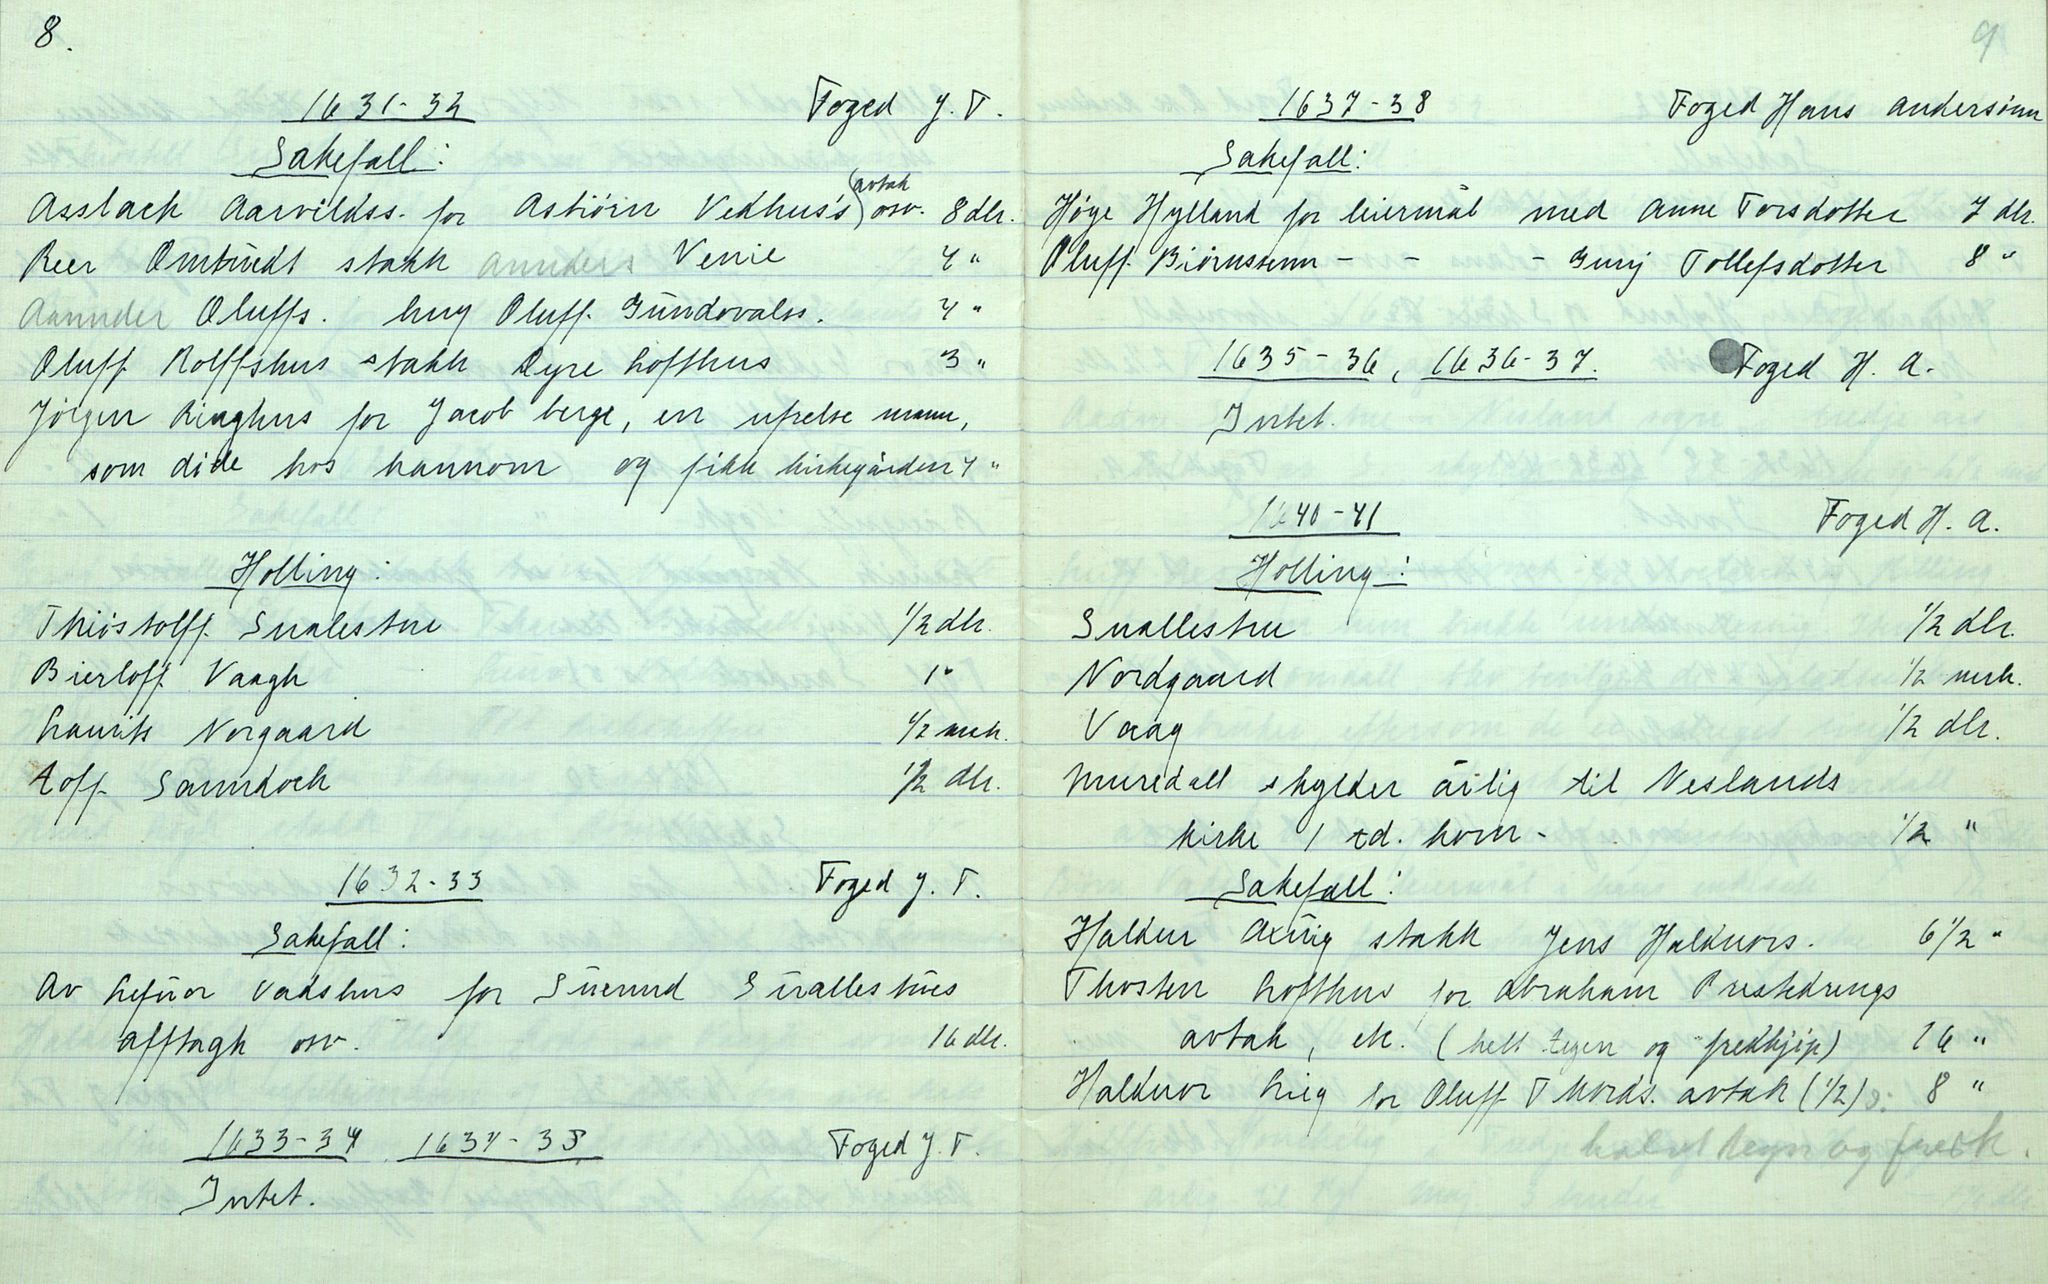 8.
1631-32 Foged J. T.
Sakefall:
Asslack Aarvildss. for Astiörn Vedhus's (avtak osv. 8 dlr.
Reer Omtundt stakk Annders Venie 4 "
Aannder Oluffs. hug Oluff Gundovalss. 4 "
Oluff Rolffshus stakk Dyre Lofthus 3 "
Jörgen Ringhus for Jacob berge, en ufrelse mann,
som díde hos hannom og fikk kirkegården 4 "
Holling:
Thiöstolff Sualestue 1/2 dlr.
Bierloff Vaagh 1 "
Laurits Norgaard 1/2 mrk.
Loff Sanndock 1/2 dlr.
1632-33 Foged J. T.
Sakefall:
Av Lefuor Vadshus for Suenud Suallestues
afftagh osv. 16 dlr.
1633-34 1634-35 Foged J. T.
Intet.
9
1637-38 Foged Hans Andersönn
Sakefall:
Höge Hylland for leiermål med Anne Torsdotter 7 dlr.
Oluff Biörnssenn - - - Gunj Tollefsdotter 8 "
1635-36, 1636-37. Foged H. A.
Intet.
1640-41 Foged H. A.
Holling:
Suallestue 1/2 dlr.
Nordgaard 1/2 mrk.
Vaag 1/2 dlr.
Muredall skylder årlig til Neslands
kirke 1 td. korn - 1/2 "
Sakefall:
Haldur stakk Jens Halduors. 6 1/2 "
Thosten Lofthus for Abraham Prestedrengs
avtak, etc. (helt tegen og fredkjöp) 16 "
Halduor Lieg for Oluff Thords. avtak (1/2) o: 8 "
halvt tegn og fredk.